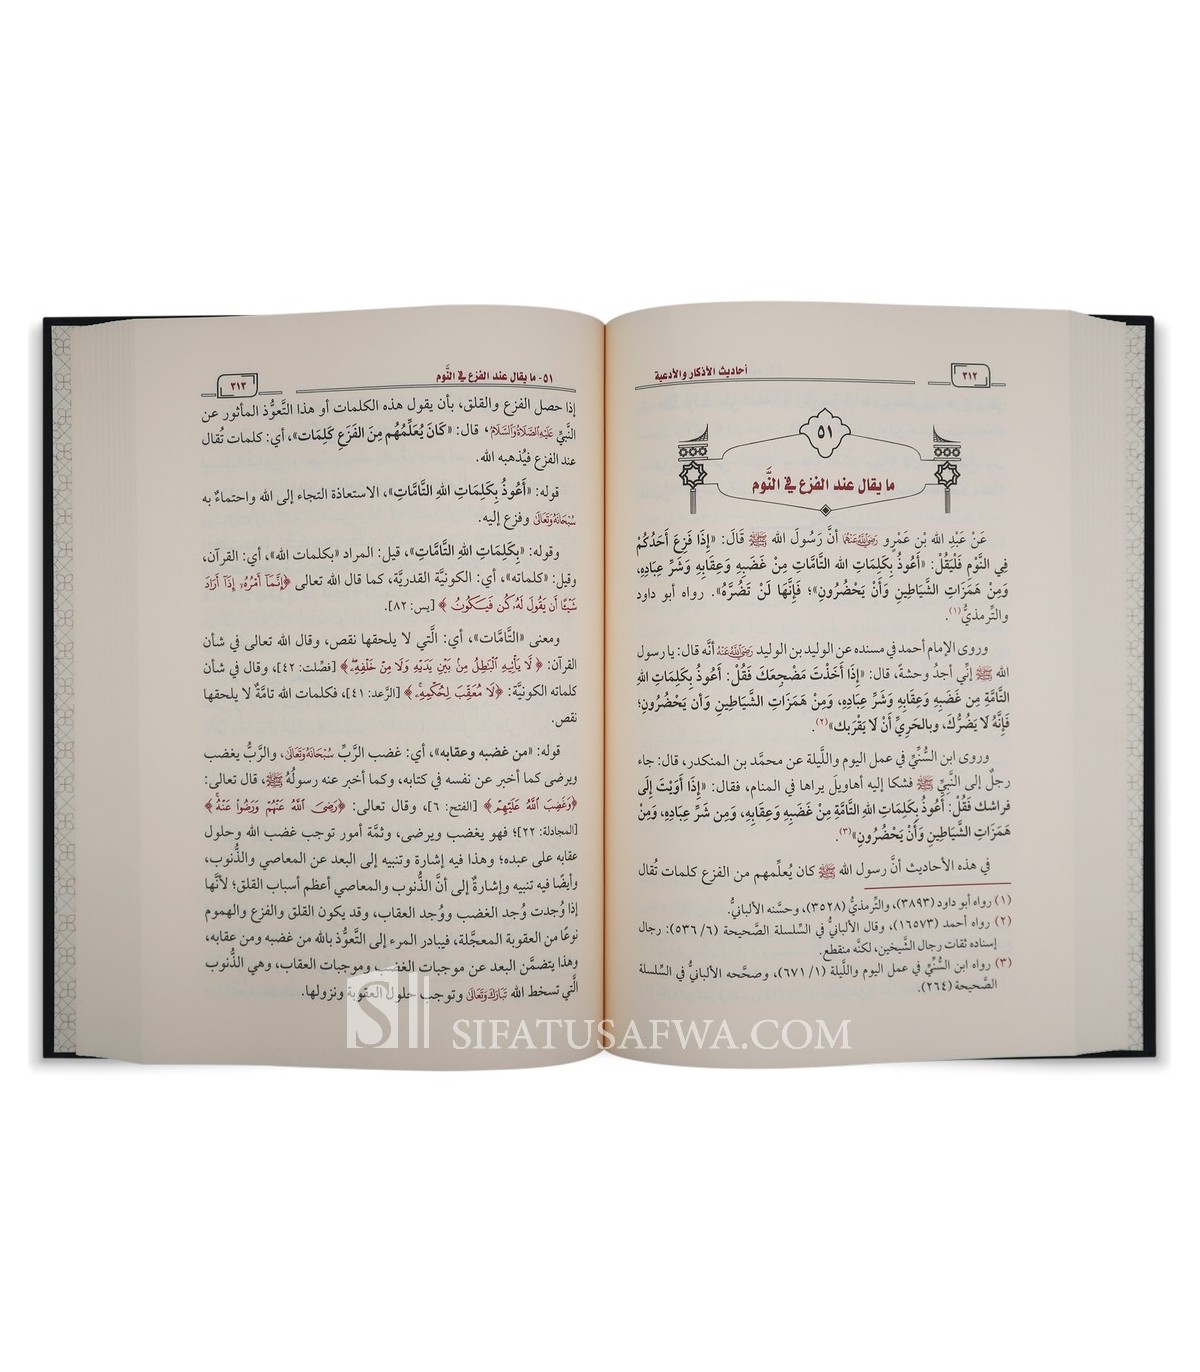 ٣١٢
أحاديث الأذكار والأدعية
٥١
ما يقال عند الفزع في النَّوم
عَنْ عَبْدِ الله بْنِ عَمْرٍو رَضِيَ اللَّهُ عَنْهُمَا أنَّ رَسُولَ الله ﷺ قَالَ: «إِذَا فَزِعَ أَحَدُكُمْ
فِي النَّوْمِ فَلْيَقُلْ: «أَعُوذُ بِكَلِمَاتِ الله التَّامَّاتِ مِنْ غَضَبِهِ وَعِقَابِهِ وَشَرِّ عِبَادِهِ،
وَمِنْ هَمَزَاتِ الشَّيَاطِينِ وَأَنْ يَحْضُرُونِ»؛ فَإِنَّهَا لَنْ تَضُرَّهُ». رواه أبو داود
والتِّرمذيُّ(١).
وروى الإمام أحمد في مسنده عن الوليد بن الوليد رَضِيَ اللَّهُ عَنْهُ أنَّه قال: يا رسول
الله ﷺ إنِّي أجدُ وحشةً، قال: «إِذَا أَخَذْتَ مَضْجِعَكَ فَقُلْ: أَعُوذُ بِكَلِمَاتِ اللهِ
التَّامَّةِ مِن غَضَبِهِ وَعِقَابِهِ وَشَرِّ عِبَادِهِ، وَمِنْ هَمَزَاتِ الشَّيَاطِينِ وَأن يَحْضُرُونِ؛
فَإِنَّهُ لَا يَضُرُّكَ، وبالحَرِيِّ أَنْ لَا يَقْرَبك»(٢).
وروى ابن السُّنِّيِّ في عمل اليوم واللَّيلة عن محمَّد بن المنكدر، قال: جاء
رجلٌ إلى النَّبيِّ ﷺ فشكا إليه أهاويلَ يراها في المنام، فقال: «إِذَا أَوَيْتَ إِلَى
فراشك فَقُلْ: أَعُوذُ بِكَلِمَاتِ اللهِ التَّامَّةِ مِنْ غَضَبِهِ وَعِقَابِهِ، ومِن شَرِّ عِبَادِهِ، وَمِنْ
هَمَزَاتِ الشَّيَاطِينِ وَأَنْ يَحْضُرُونِ»(٣).
في هذه الأحاديث أنَّ رسول الله ﷺ كان يُعلِّمهم من الفزع كلمات تُقال
(١) رواه أبو داود (٣٨٩٣)، والتِّرمذيُّ (٣٥٢٨)، وحسَّنه الألبانيُّ.
(٢) رواه أحمد (١٦٥٧٣)، وقال الألبانيُّ في السِّلسلة الصَّحيحة (٥٣٦/٦): رجال
إسناده ثقات رجال الشَّيخين، لكنَّه منقطع.
(٣) رواه ابن السُّنِّيِّ في عمل اليوم واللَّيلة (٦٧١/١)، وصحَّحه الألبانيُّ في السِّلسلة
الصَّحيحة (٢٦٤).
٥١- ما يقال عند الفزع في النَّوم
٣١٣
إذا حصل الفزع والقلق، بأن يقول هذه الكلمات أو هذا التَّعوُّذ المأثور عن
النَّبيِّ عَلَيْهِ الصَّلَاةُ وَالسَّلَامُ، قال: «كَانَ يُعَلِّمُهُم مِنَ الفَزَعِ كَلِمَات»، أي: كلمات تُقال
عند الفزع فيُذهبه الله.
قوله: «أَعُوذُ بِكَلِمَاتِ اللهِ التَّامَّاتِ»، الاستعاذة التجاء إلى الله واحتماءٌ به
سُبْحَانَهُ وَتَعَالَى وفزع إليه.
وقوله: «بِكَلِمَاتِ اللهِ التَّامَّاتِ»، قيل: المراد «بكلمات الله»، أي: القرآن،
وقيل: «كلماته»، أي: الكونيَّة القدريَّة، كما قال الله تعالى ﴿إِنَّمَا أَمْرُهُۥ إِذَا أَرَادَ
شَيْئًا أَن يَقُولَ لَهُۥ كُن فَيَكُونُ﴾ [يس: ٨٢].
ومعنى «التَّامَّات»، أي: الَّتي لا يلحقها نقص، وقال الله تعالى في شأن
القرآن: ﴿لَا يَأْتِيهِ الْبَاطِلُ مِنْ بَيْنِ يَدَيْهِ وَلَا مِنْ خَلْفِهِ﴾ [فصِّلت: ٤٢]، وقال في شأن
كلماته الكونيَّة: ﴿لَا مُعَقِّبَ لِحُكْمِهِ﴾ [الرَّعد: ٤١]، فكلمات الله تامَّةٌ لا يلحقها
نقص.
قوله: «من غضبه وعقابه»، أي: غضب الرَّبِّ سُبْحَانَهُ وَتَعَالَى، والرَّبُّ يغضب
ويرضى كما أخبر عن نفسه في كتابه، وكما أخبر عنه رسولُهُ ﷺ، قال تعالى:
﴿وَغَضِبَ اللَّهُ عَلَيْهِمْ﴾ [الفتح: ٦]، وقال تعالى: ﴿رَضِيَ اللَّهُ عَنْهُمْ وَرَضُوا عَنْهُ﴾
[المجادلة: ٢٢]؛ فهو يغضب ويرضى، وثمَّة أمور توجب غضب الله وحلول
عقابه على عبده؛ وهذا فيه إشارة وتنبيه إلى البعد عن المعاصي والذُّنوب،
وأيضًا فيه تنبيه وإشارةٌ إلى أنَّ الذُّنوب والمعاصي أعظم أسباب القلق؛ لأنَّها
إذا وُجدت وُجد الغضب ووُجد العقاب، وقد يكون القلق والفزع والهموم
نوعًا من العقوبة المعجَّلة، فيبادر المرء إلى التَّعوُّذ بالله من غضبه ومن عقابه،
وهذا يتضمَّن البعد عن موجبات الغضب وموجبات العقاب، وهي الذُّنوب
الَّتي تسخط الله تَبَارَكَ وَتَعَالَى وتوجب حلول العقوبة ونزولها.
SIFATUSAFWA.COM